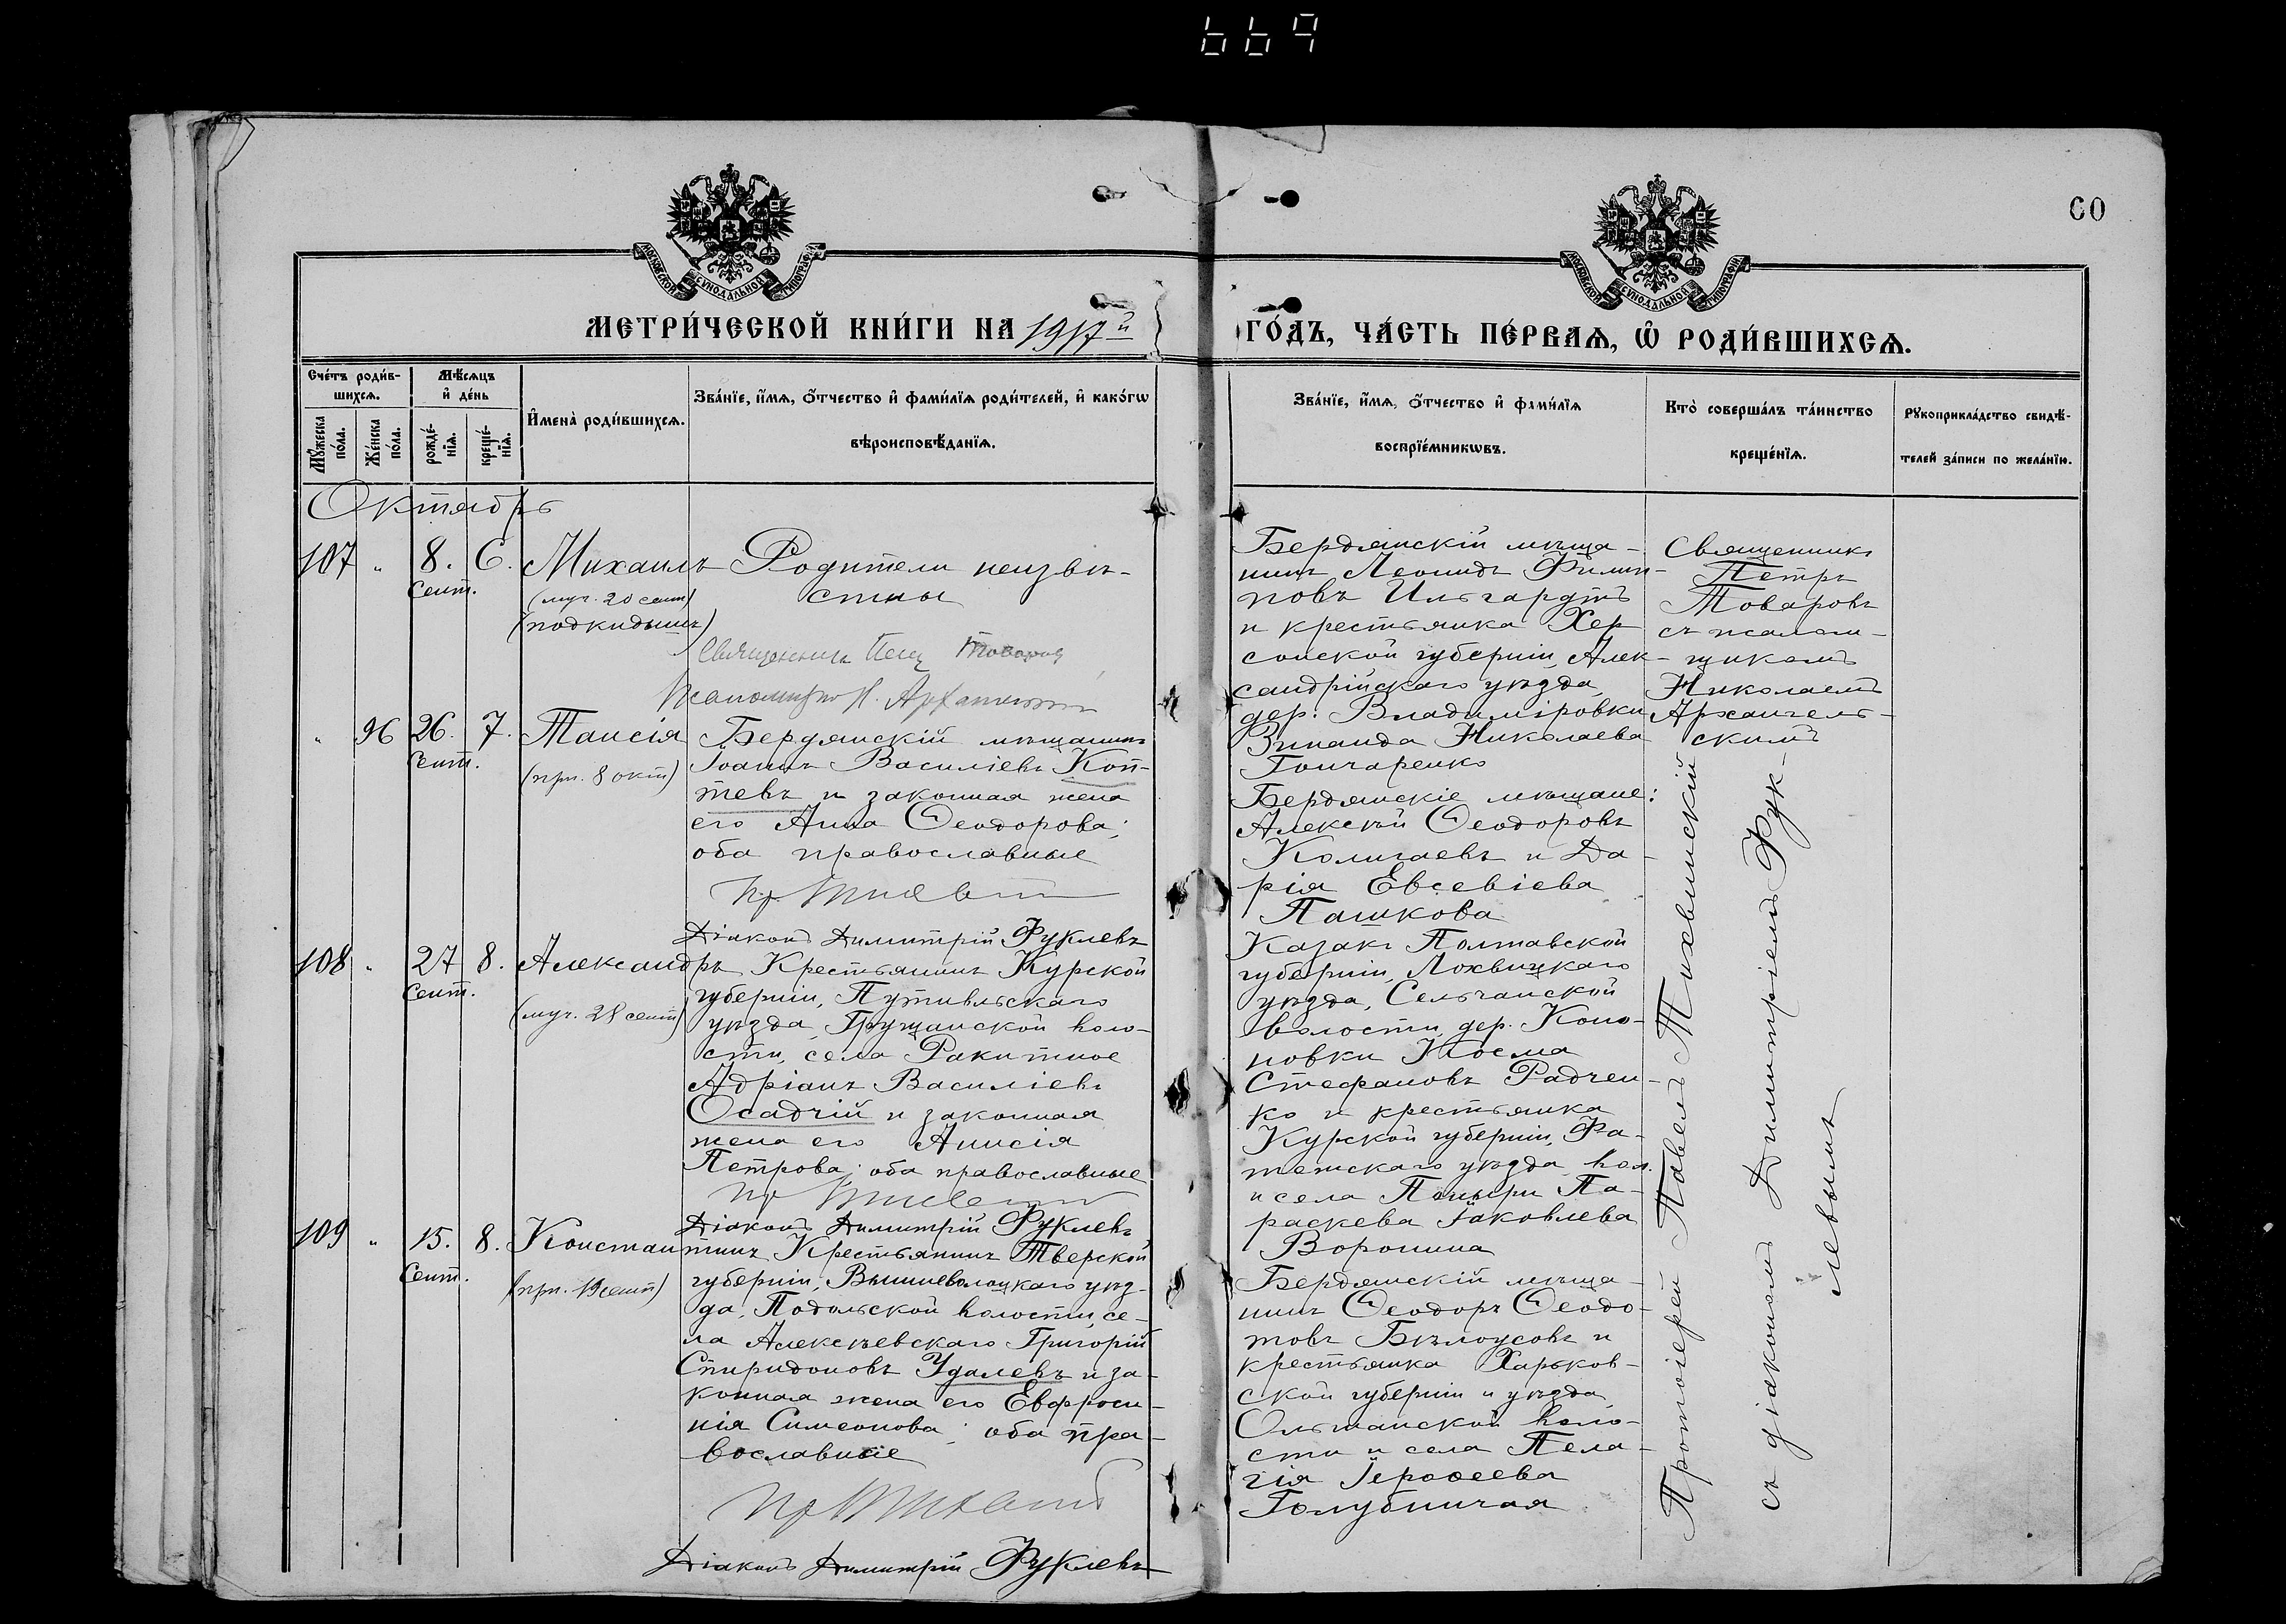 669
60
МОСКОВСКОЙ СѴНОДАЛЬНОЙ ТИПОГРАФІИ
МОСКОВСКОЙ СѴНОДАЛЬНОЙ ТИПОГРАФІИ
МЕТРИ́ЧЕСКОЙ КНИ́ГИ НА 1917й
ГО́ДЪ, ЧА́СТЬ ПЕ́РВАѦ, Ѽ РОДИ́ВШИХСѦ.
Сче́тъ роди́в-
шихсѧ.
Мѣ́сѧцъ
и҆ де́нь
Мꙋ́жеска
по́ла.
Же́нска
по́ла.
рожде́-
нїѧ.
креще́-
нїѧ.
И҆мена̀ роди́вшихсѧ.
Зва́нїе, и҆́мѧ, ѻ҆́тчество и҆ фами́лїѧ роди́телей, и҆ како́гѡ
вѣроисповѣ́данїѧ.
Зва́нїе, и҆́мѧ, ѻ҆́тчество и҆ фами́лїѧ
воспрїе́мникѡвъ.
Кто̀ соверша́лъ та́инство
креще́нїѧ.
Рꙋкоприкла́дство свидѣ́-
телей за́писи по жела́нїю.
Октябрь
107 " 8. 6. Михаилъ
Сент.
(муч. 20 сент)
(подкидышъ)
Родители неизвѣ-
стны
Священникъ Петр Товаров
Псаломщикъ Н. Архангельскій
Бердянскій мѣща-
нинъ Леонидъ Филип-
повъ Ильгардтъ
и крестьянка Хер
сонской губерніи, Алек-
сандрійскаго уѣзда,
дер. Владиміровки
Зинаида Николаева
Гончаренко
Священникъ
Петръ
Товаровъ
съ псалом-
щикомъ
Николаемъ
Архангель-
скимъ
" 96 26. 7. Таисія
Сент.
(прп. 8 окт)
Бердянскій мѣщанинъ
Іоаннъ Василіевъ Коп-
тевъ и законная жена
его Анна Ѳеодорова;
оба православные
Діаконъ Димитрій Фуклевъ
Бердянскіе мѣщане:
Алексѣй Ѳеодоровъ
Колигаевъ и Да-
рія Евсевіева
Пашкова
108 " 27 8. Александръ
Сент.
(муч. 28 сент)
Крестьянинъ Курской
губерніи, Путивльскаго
уѣзда, Грузчанской воло-
сти, села Ракитное
Адріанъ Василіевъ
Осадчій и законная
жена его Анисія
Петрова; оба православные
Діаконъ Димитрій Фуклевъ
Казакъ Полтавской
губерніи, Лохвицкаго
уѣзда, Сенчанской
волости, дер. Коно-
новки Косма
Стефановъ Радчен-
ко и крестьянка
Курской губерніи, Фа-
тежскаго уѣзда, вол.
и села Поныри Па-
раскева Іаковлева
Воронина
109 " 15. 8. Константинъ
Сент.
(прп. 19 сент)
Крестьянинъ Тверской
губерніи, Вышневолоцкаго уѣз-
да, Подольской волости, се-
ла Алексѣевскаго Григорій
Спиридоновъ Удалевъ и за-
конная жена его Евфроси-
нія Симеонова; оба пра-
вославные
Діаконъ Димитрій Фуклевъ
Бердянскій мѣща-
нинъ Ѳеодоръ Ѳеодо-
товъ Бѣлоусовъ и
крестьянка Харьков-
ской губерніи и уѣзда,
Ольшанской воло-
сти и села Пела-
гія Іероѳеева
Голубничая
Протоіерей Павелъ Тихвинскій
съ діакономъ Димитріемъ Фук-
левымъ